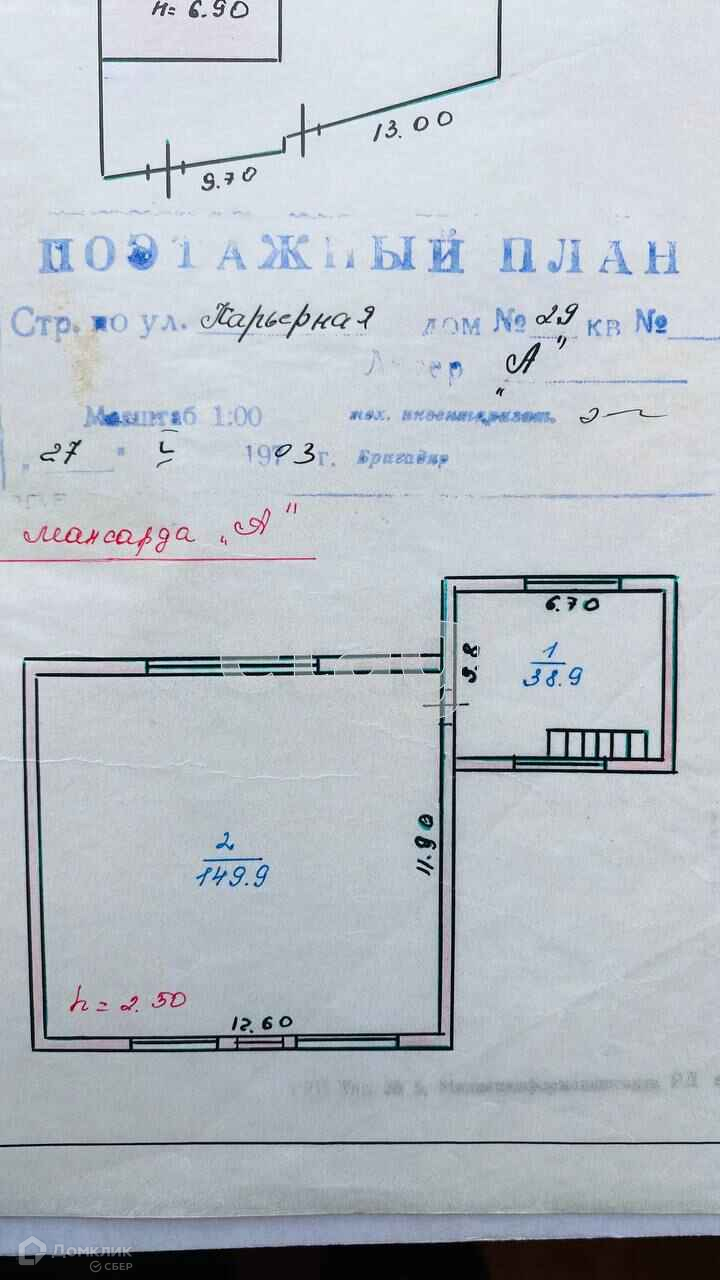 h= 6.90
13.00
9.70
ПОЭТАЖНЫЙ ПЛАН
Стр. по ул. Карьерная дом № 29 кв №
Литер "А"
Масштаб 1:00 тех. инвентаризат.
"27" I 1903 г. Бригадир
мансарда "А"
6.70
9.8
1
38.9
2
149.9
11.90
h= 2.50
12.60
Домклик
СБЕР